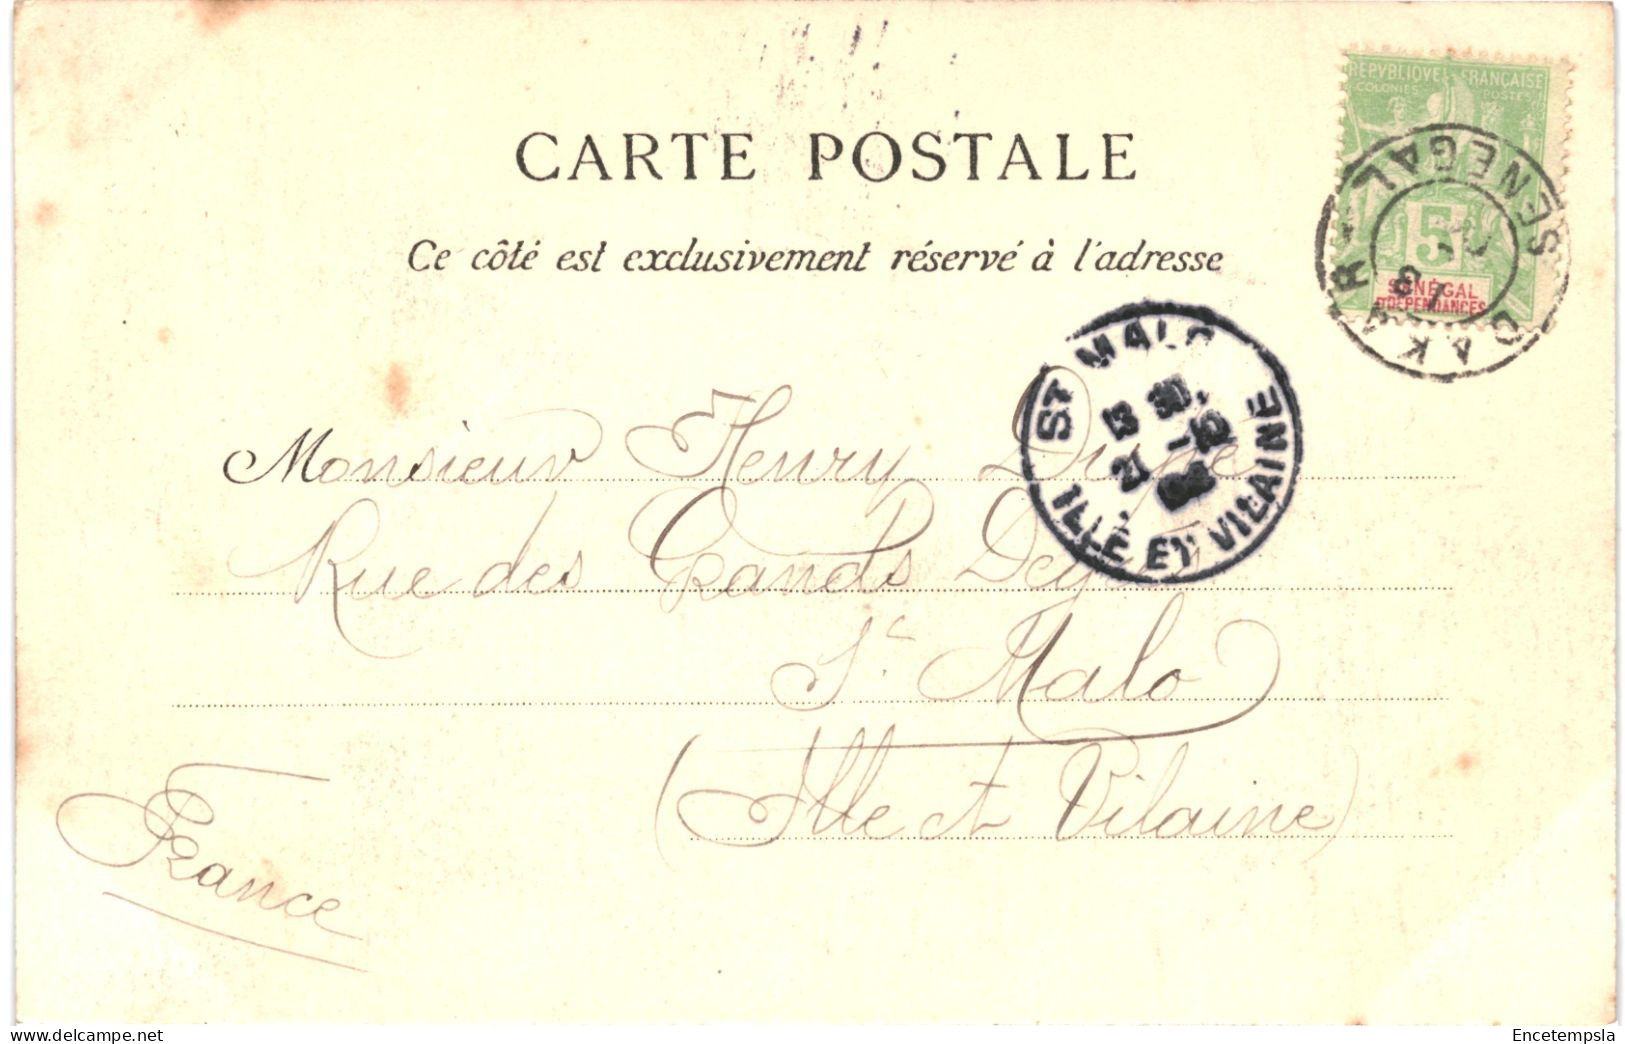 REPVBLIQVE FRANÇAISE
COLONIES POSTES
5
SÉNÉGAL
ET DÉPENDANCES
DAKAR
SÉNÉGAL
CARTE POSTALE
Ce côté est exclusivement réservé à l'adresse
ST MALO
ILLE ET VILAINE
Monsieur Henry
Rue des Grands
St Malo
(Ille et Vilaine)
France
Encetempsla